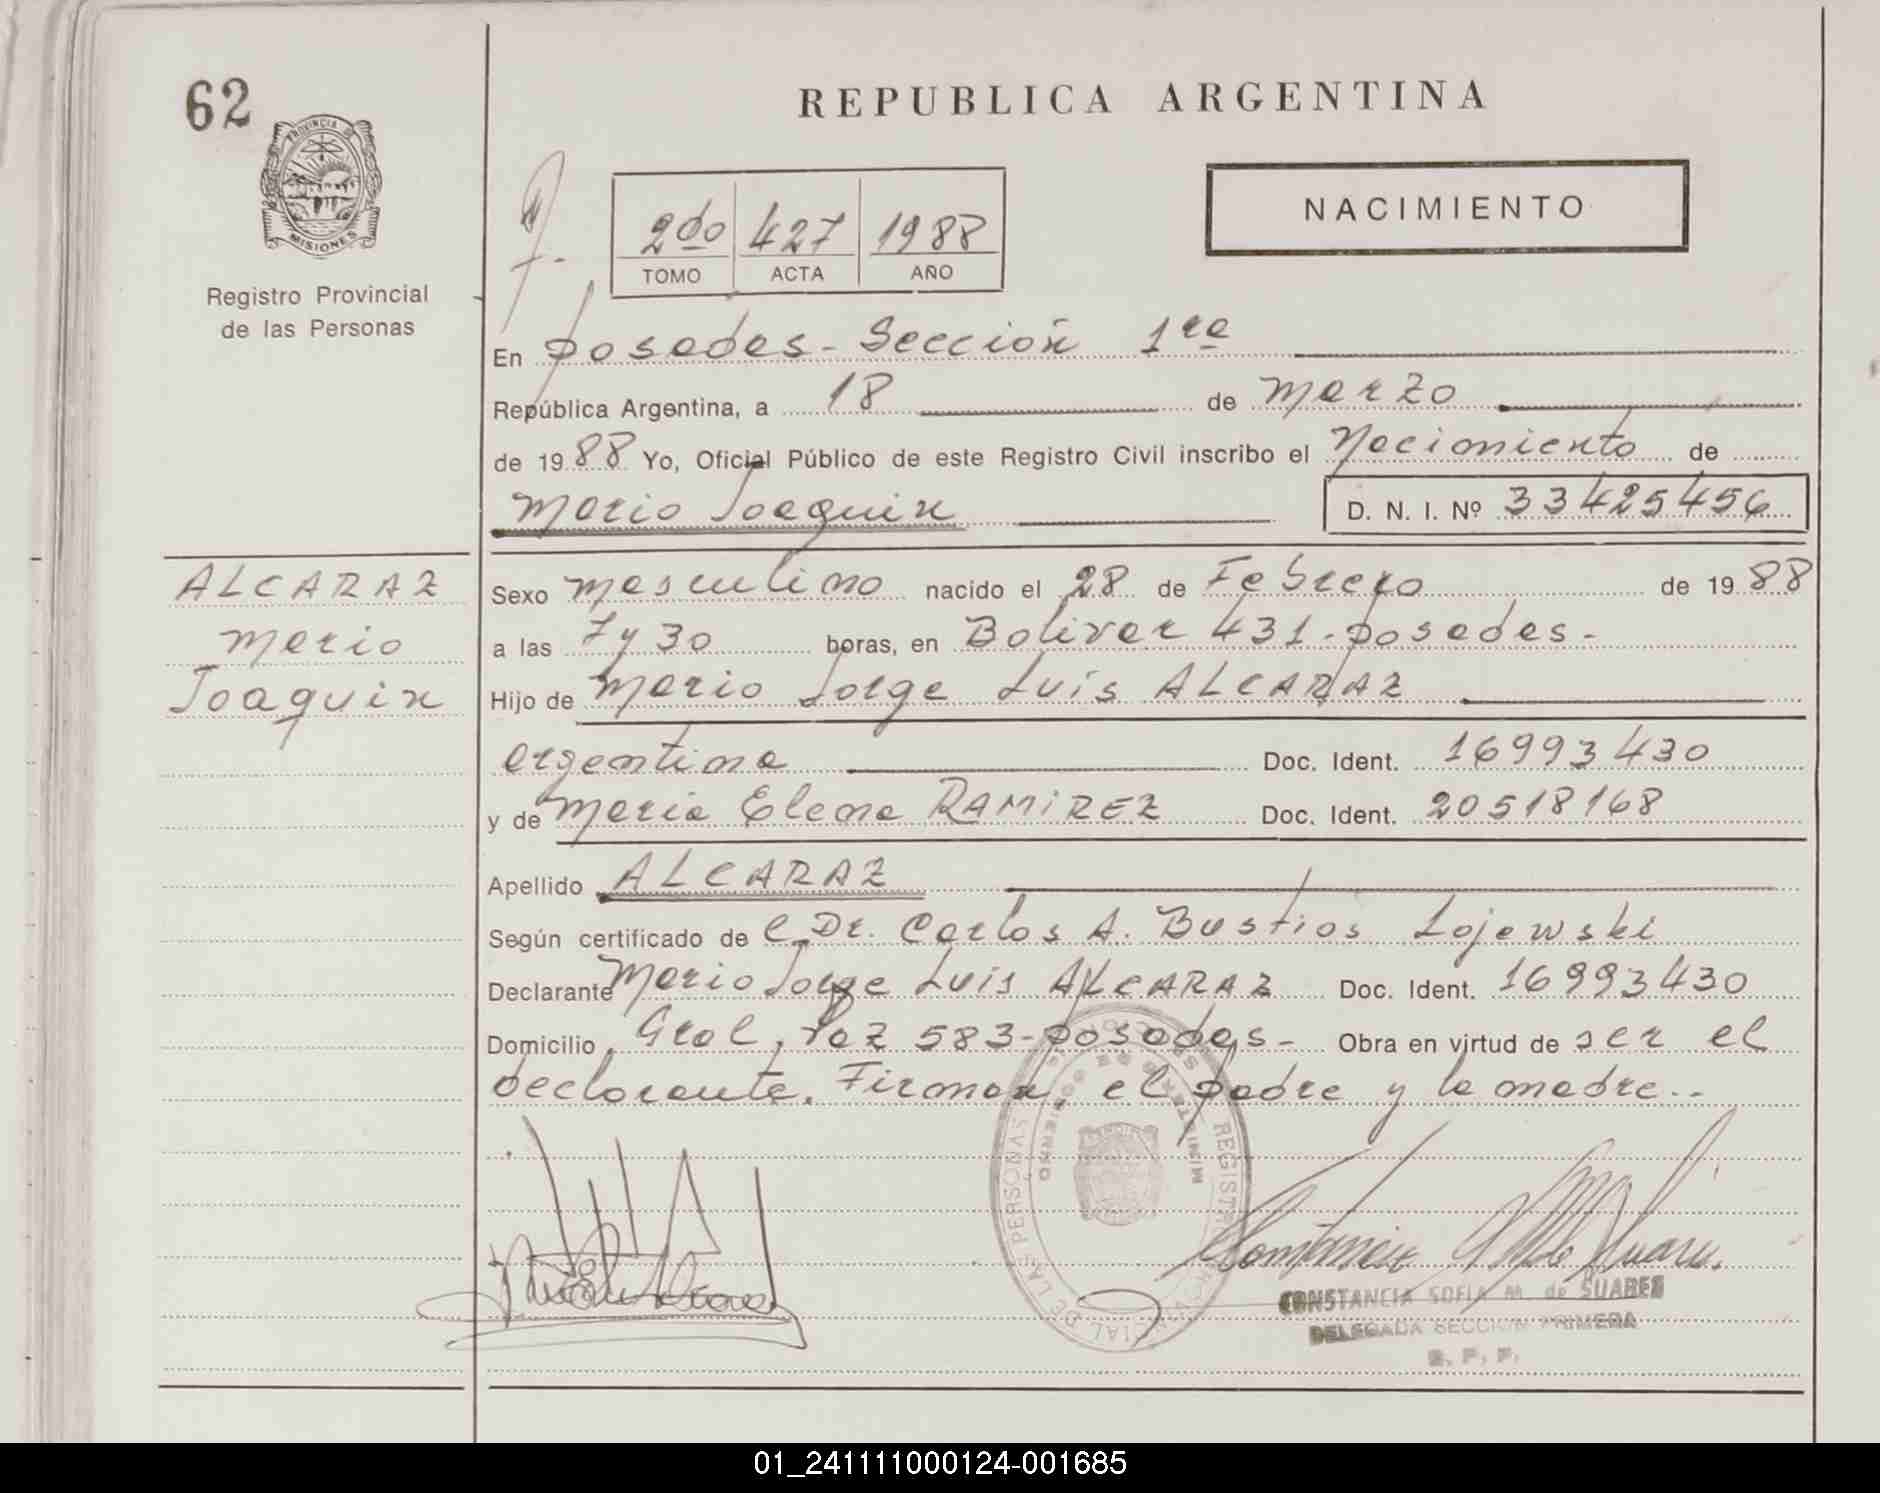 62
REPUBLICA ARGENTINA
PROVINCIA DE
MISIONES
Registro Provincial
de las Personas
2do 427 1988
TOMO ACTA AÑO
NACIMIENTO
En Posadas - Sección 1ra
República Argentina, a 18 de marzo
de 1988 Yo, Oficial Público de este Registro Civil inscribo el Nacimiento de
Mario Joaquin D. N. I. Nº 33425456
ALCARAZ
Mario
Joaquin
Sexo masculino nacido el 28 de Febrero de 1988
a las 7 y 30 horas, en Bolivar 431 - posadas -
Hijo de Mario Jorge Luis ALCARAZ
argentina Doc. Ident. 16993430
y de Maria Elena RAMIREZ Doc. Ident. 20518168
Apellido ALCARAZ
Según certificado de C. Dr. Carlos A. Bustios Lojewski
Declarante Mario Jorge Luis ALCARAZ Doc. Ident. 16993430
Domicilio Gral. Paz 583 - posadas - Obra en virtud de ser el
declarante. Firman, el padre y la madre..
REGISTRO PROVINCIAL DE LAS PERSONAS
MINISTERIO DE GOBIERNO
CONSTANCIA SOFIA M. de SUARES
DELEGADA SECCION PRIMERA
01_241111000124-001685